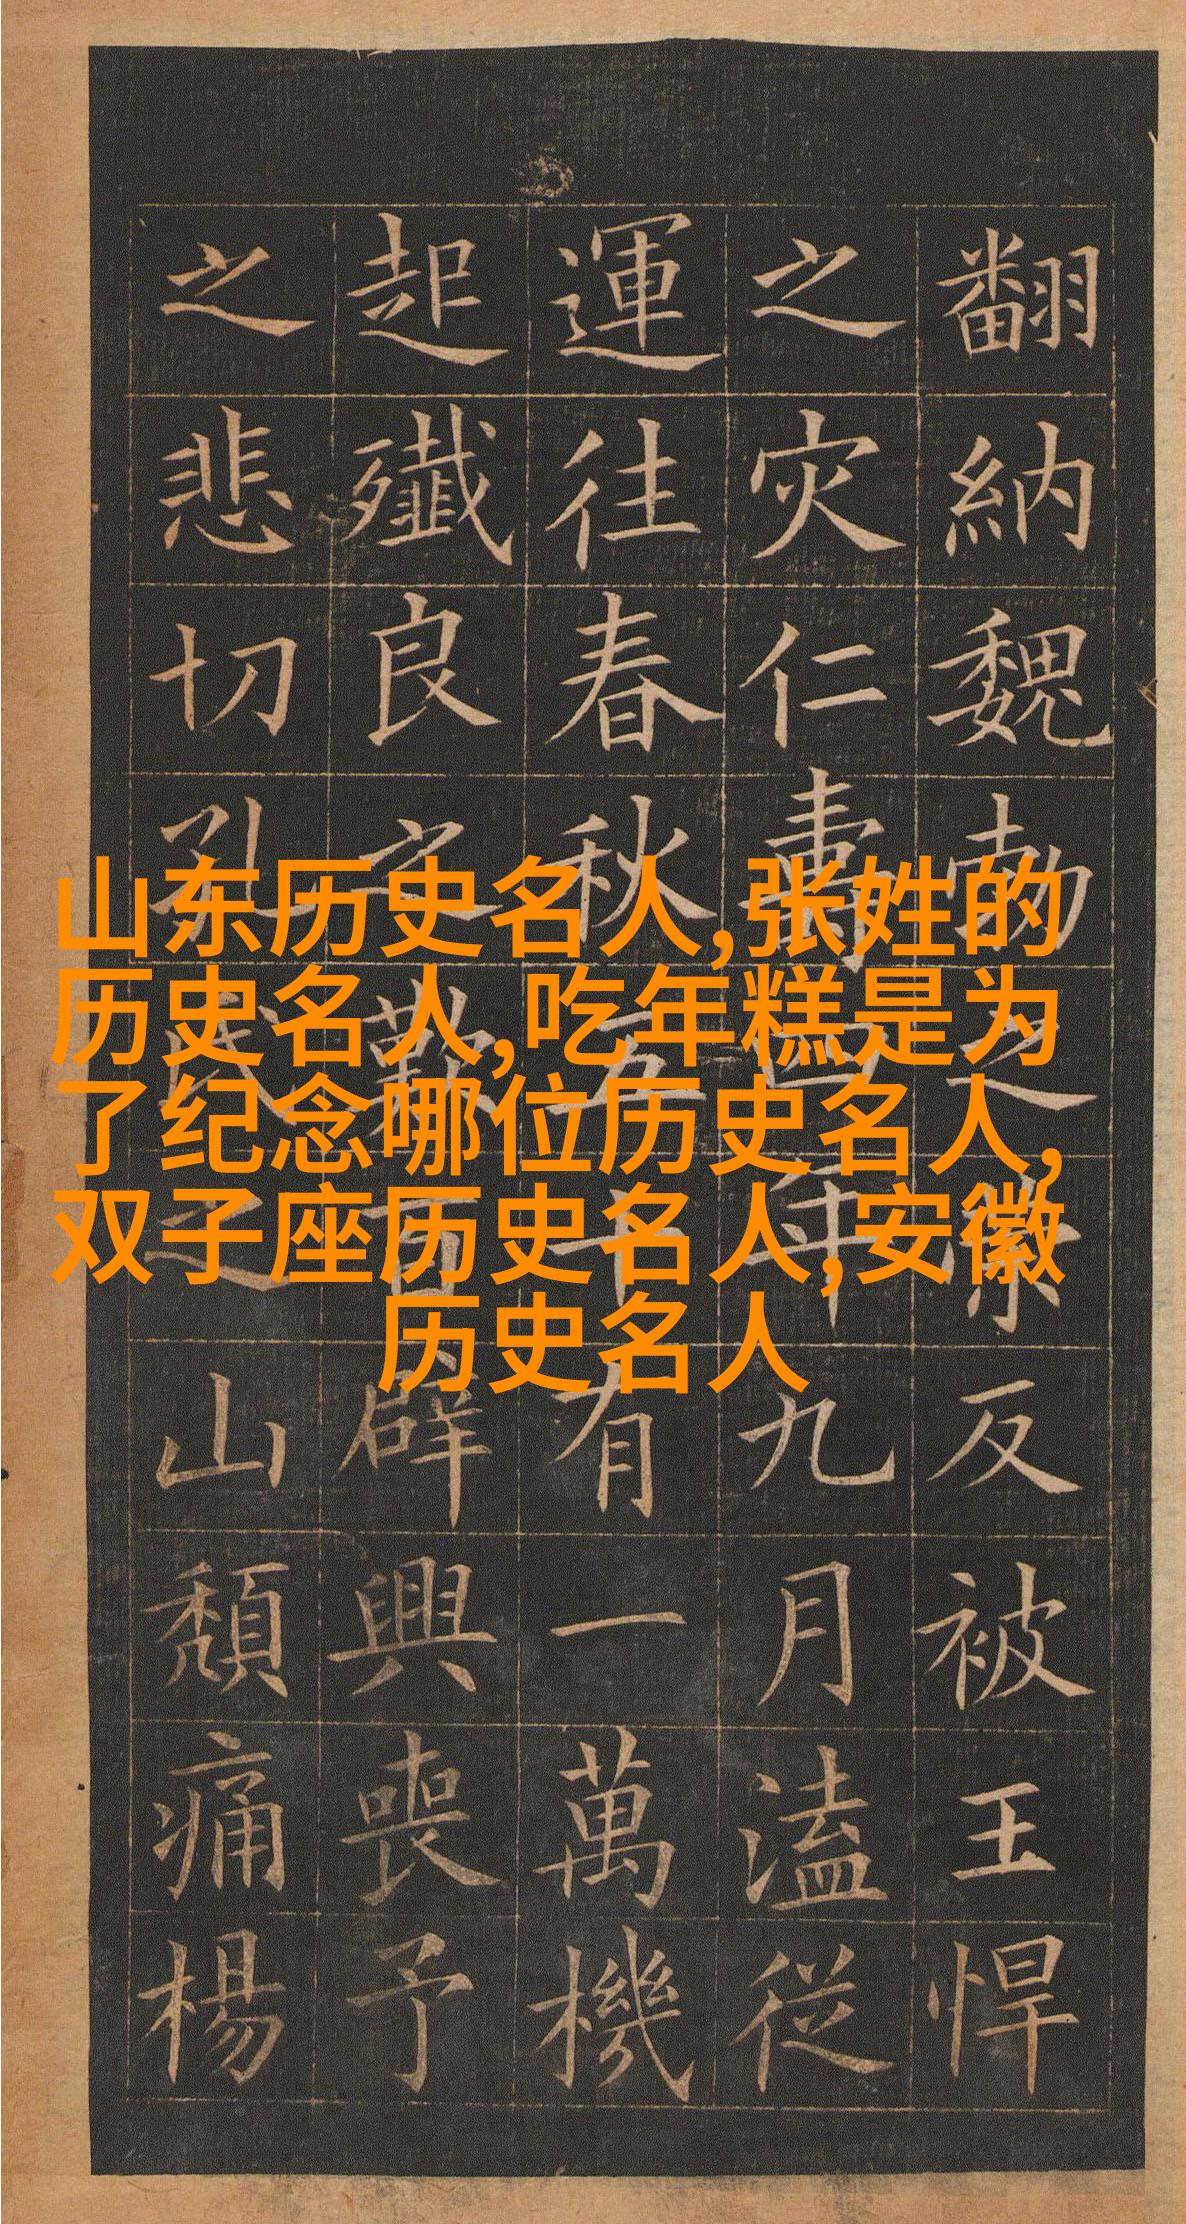 山东历史名人,张姓的
历史名人,吃年糕是为
了纪念哪位历史名人,
双子座历史名人,安徽
历史名人
翻納魏勃之反被王悍
之灾仁壽四年九月溘從
運往春秋五十有一萬機
起殲良之歎百辟興喪予
之悲切孔氏之山頹痛楊